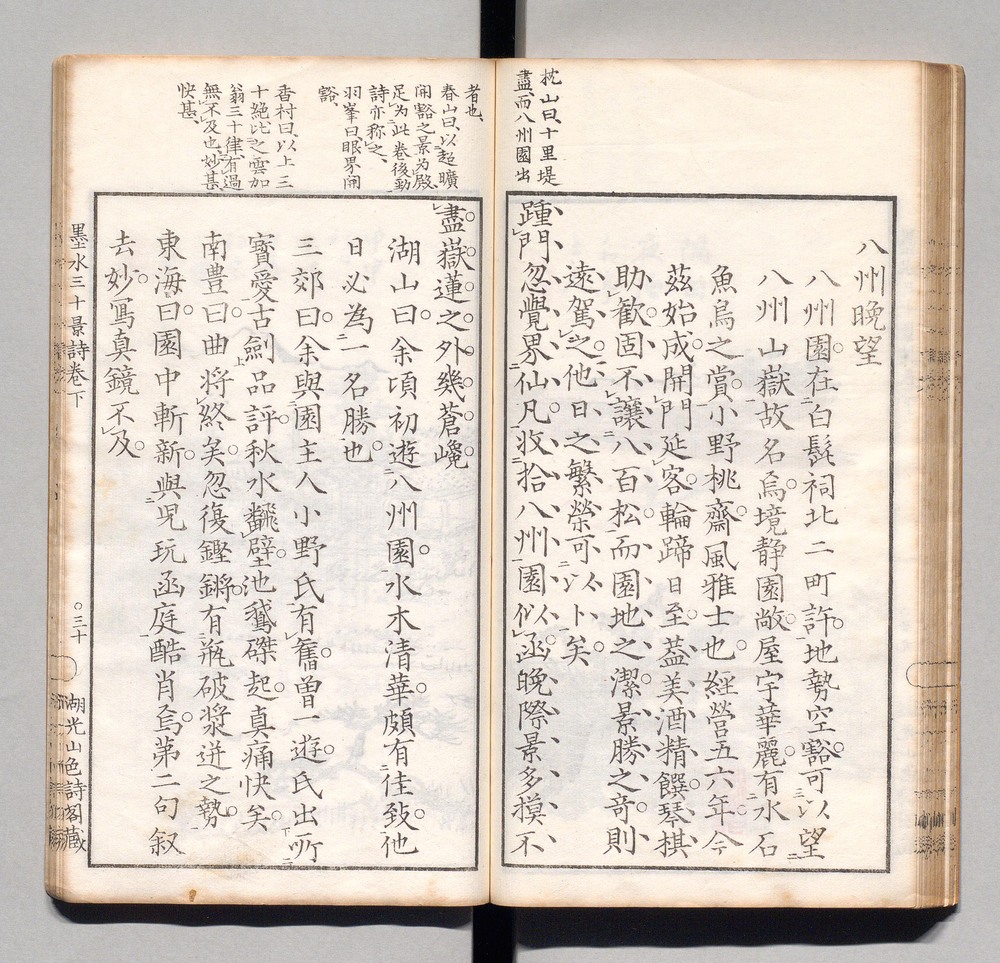 枕山曰、十里堤
盡、而八州園出
八州晩望
八州園在白髭祠北二町許地勢空豁可以望
八州山嶽故名焉境静園敞屋宇華麗有水石
魚鳥之賞小野桃齋風雅士也經營五六年今
茲始成開門延客輪蹄日至蓋美酒精饌琴棋
助歡固不讓八百松而園地之潔景勝之奇則
遠駕之他日之繁榮可以卜矣
踵門忽覺界仙凡收拾八州園似函晩際景多摸不
者也、
春山曰、以超曠
開豁之景為殿
足為此卷後勁
詩亦称之、
羽峯曰、眼界開
豁、
香村曰、以上三
十絶、比之雲如
翁三十律、有過
無不及也、妙甚
快甚、
盡嶽蓮之外幾蒼巉
湖山曰余頃初遊八州園水木清華頗有佳致他
日必為一名勝也
三郊曰余與園主人小野氏有舊曽一遊氏出所
寳愛古劍品評秋水飜壁池鵞磔起真痛快矣
南豊曰曲将終矣忽復鏗鏘有瓶破漿迸之勢
東海曰園中斬新與児玩函庭酷肖焉第二句叙
去妙寫真鏡不及
墨水三十景詩卷下
○三十
湖光山色詩閣蔵